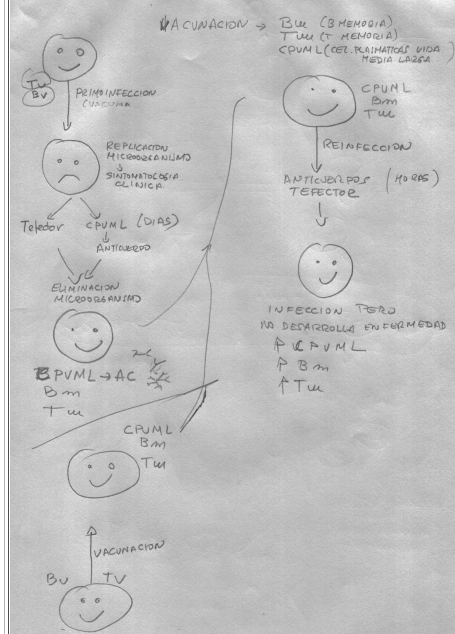 VACUNACION → Bm (B MEMORIA)
Tm (T MEMORIA)
CPVML (CEL. PLASMATICAS VIDA
MEDIA LARGA)
Bv
PRIMOINFECCION
REPLICACION
MICROORGANISMO
SINTOMATOLOGIA
CLINICA
Tefector CPVML (DIAS)
ANTICUERPO
ELIMINACION
MICROORGANISMO
CPVML → AC
Bm
Tm
CPVML
Bm
Tm
VACUNACION
Bv TV
CPVML
Bm
Tm
REINFECCION
ANTICUERPOS (HORAS)
TEFECTOR
INFECCION PERO
NO DESARROLLA ENFERMEDAD
↑ CPVML
↑ Bm
↑ Tm